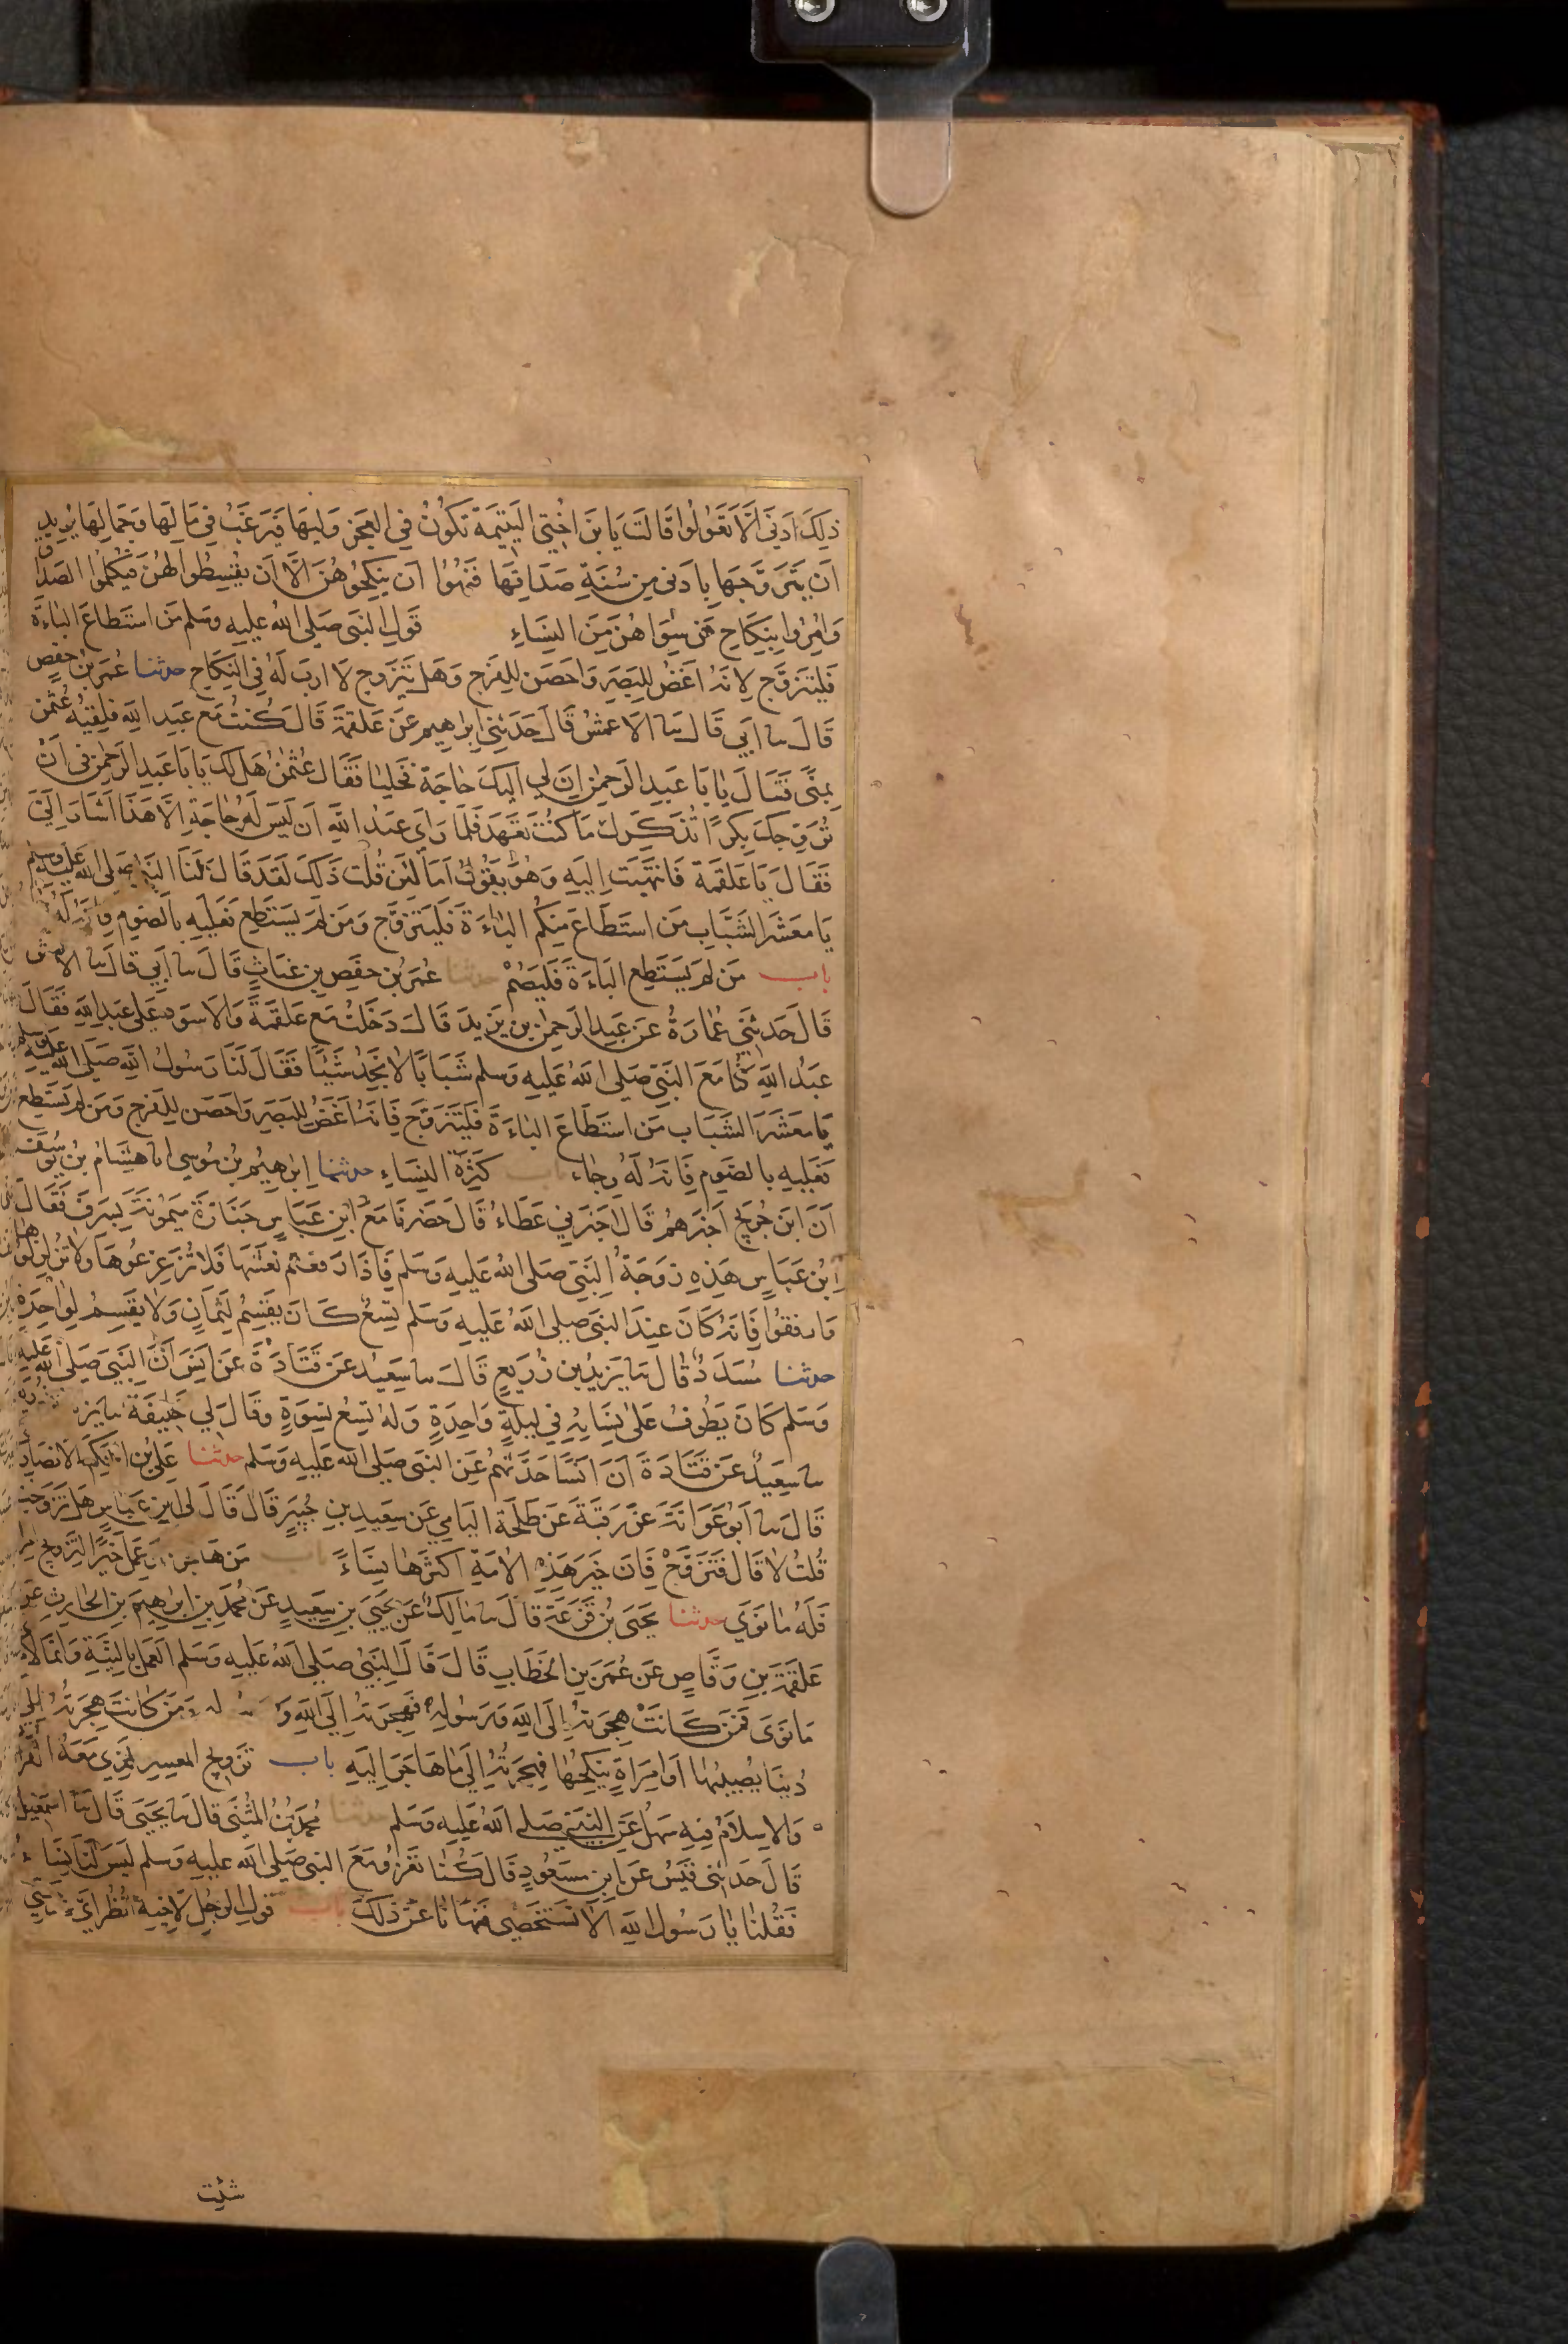 ذلِكَ اَدْنَى اَلَّا تَعُولُوا قَالَتْ يَا بْنَ اُخْتِي الْيَتِيمَةُ تَكُونُ فِي الْحَجْرِ وَلِيِّهَا فَيَرْغَبُ فِي مَالِهَا وَجَمَالِهَا يُرِيدُ
اَنْ يَتَزَوَّجَهَا بِاَدْنَى مِنْ سُنَّةِ صَدَاقِهَا فَنُهُوْا اَنْ يَنْكِحُوهُنَّ اِلَّا اَنْ يُقْسِطُوا لَهُنَّ فَيُكْمِلُوا الصَّدَاقَ
وَاُمِرُوا بِنِكَاحِ مَنْ سِوَاهُنَّ مِنَ النِّسَاءِ قَولِ النَّبِي صَلَى اللهُ عَلَيهِ وَسَلم مَنِ اسْتَطَاعَ الْبَاءَةَ
فَليَتَزَوَّج لِاَنَّهُ اَغَضُّ لِلبَصَرِ وَاَحصَنُ لِلفَرْجِ وَهَل يَتَزَوج لَا اِرَبَ لَهُ فِي النِّكَاحِ حدثنا عُمَرُ بْنُ حَفصٍ
قَالَ ثنا اَبِي قَالَ ثنا الاَعمشُ قَالَ حَدَثَنِي اِبرَاهِيم عَن عَلقَمَةَ قَالَ كُنتُ مَعَ عَبدِ اللهِ فَلَقِيَهُ عُثْمٰن
بِمِنًى فَقَالَ يَا بَا عَبدِ الرَحمٰنِ اِنَّ لِي اِلَيكَ حَاجَة فَخَلَيَا فَقَالَ عُثمٰنُ هَل لَكَ يَا بَا عَبدِ الرَحمٰنِ فى اَنْ
نُزَوِّجَكَ بِكرًا تُذَكِّرُكَ مَا كُنتَ تَعهَد فَلَمَا رَاى عَبْدُ اللهِ اَن لَيسَ لَهُ حَاجَةٌ اِلَّا هَذَا اَشَارَ اِلَيَّ
فَقَالَ يَا عَلقَمَة فَانتَهَيتُ اِلَيهِ وَهُوَ يَقُولُ اَمَا لَئِن قُلتَ ذَلكَ لَقَد قَالَ لَنَا النَّبِي صَلى الله عَليه وسلم
يَا مَعشَرَ الشَّبَابِ مَنِ استَطَاعَ مِنكُمُ البَاءَةَ فَليَتَزَوَّج وَمَن لَم يَستَطِع فَعَلَيهِ بِالصَّومِ فَاِنَّهُ لَهُ
باب مَن لَم يَستَطِعِ البَاءَةَ فَليَصُمْ حدثنا عُمَرُ بن حَفصِ بنِ غيَاثٍ قَالَ ثنا اَبِي قَالَ ثنا الاعمش
قَالَ حَدثَنِي عُمَارَةُ عَن عَبدِ الرَحمٰنِ بن يَزِيدَ قَالَ دَخَلتُ مَعَ عَلقَمَةَ وَالاَسوَدِ عَلَى عَبدِ اللهِ فَقَالَ
عَبدُ اللهِ كُنَّا مَعَ النَّبِيِّ صَلى اللهُ عَلَيهِ وَسَلم شَبَابًا لَا نَجِدُ شَيْئًا فَقَالَ لَنَا رَسُولُ اللهِ صَلَى الله عَلَيه وسلم
يَا مَعشَرَ الشَّبَابِ مَنِ استَطَاعَ البَاءَةَ فَليَتَزَوَّج فَاِنَّهُ اَغَضُّ لِلبَصَرِ وَاَحصَنُ لِلفَرج وَمَن لَم يَستَطِع
فَعَلَيهِ بِالصَّومِ فَاِنَّهُ لَهُ وِجَاء باب كَثرَةِ النِّسَاءِ حدثنا اِبرَاهِيمُ بنُ مُوسى انا هشَامُ بنُ يُوسُفَ
اَنَّ ابنَ جُرَيجٍ اَخبَرَهُم قَالَ اَخبَرَنِي عَطَاءُ قَالَ حَضَرنَا مَعَ ابنِ عَبَاسٍ جَنَازَةَ مَيمُونَةَ بِسَرِفَ فَقَالَ
ابْنُ عَبَاسٍ هَذِهِ زَوجَةُ النَّبِي صَلى اللهُ عَلَيهِ وَسَلم فَاِذَا رَفَعتُم نَعشَهَا فَلَا تُزَعزِعُوهَا وَلَا تُزَلزِلُوها
وَارفُقُوا فَاِنَّهُ كَانَ عِندَ النَّبِي صلى اللهُ عَلَيهِ وَسَلم تِسعٌ كَانَ يَقسِمُ لِثَمَانٍ وَلَا يَقسِمُ لِوَاحِدَةٍ
حدثنا مُسَدَدٌ قَالَ ثنا يَزِيدُ بن زُرَيعٍ قَالَ ثنا سَعِيدٌ عَن قَتَادَةَ عَن اَنَسٍ اَنَّ النَّبِيَّ صَلَى الله عَلَيه
وَسَلم كَانَ يَطُوفُ عَلَى نِسَائِهِ فِي لَيلَةٍ وَاحِدَةٍ وَلَهُ تِسعُ نِسوَةٍ وَقَالَ لِي خَلِيفَةُ ثنا يَزيد
ثنا سَعِيدٌ عَن قَتَادَةَ اَنَّ اَنَسًا حَدَّثَهُم عَنِ النَّبِي صَلَى الله عَلَيهِ وَسَلم حدثنا عَلِيُّ بن الحَكَم الاَنصَارِي
قَالَ ثنا اَبُو عَوَانَةَ عَن رَقَبَةَ عَن طَلحَةَ اليَامِي عَن سَعِيدِ بنِ جُبَيرٍ قَالَ قَالَ لِي ابن عَبَاسٍ هَل تَزَوجتَ
قُلتُ لَا قَالَ فَتَزَوَّج فَاِنَّ خَيرَ هَذِهِ الاُمَةِ اَكثَرُهَا نِسَاءً باب مَن هَاجَرَ اَو عَمِلَ خَيرًا لِتَزويج
فَلَهُ مَا نَوَى حدثنا يَحيَى بنُ قَزَعَةَ قَالَ ثنا مَالِكُ عَن يَحيَى بنِ سَعِيدٍ عَن مُحَمَدِ بنِ اِبرَاهِيمَ بنِ الحَارِث عَن
عَلقَمَةَ بنِ وَقَاصٍ عَن عُمَرَ بنِ الخَطَابِ قَالَ قَالَ النَّبِيُّ صَلى اللهُ عَلَيهِ وَسَلم العَمَلُ بِالنِّيَّةِ وَاِنَّمَا
مَا نَوَى فَمَن كَانَت هِجرَتُهُ اِلَى اللهِ وَرَسُولِهِ فَهِجرَتُهُ اِلَى اللهِ وَرسوله وَمَن كَانَت هِجرَتُهُ اِلى
دُنيَا يُصِيبُهَا اَو امرَاَةٍ يَنكِحُهَا فَهِجرَتُهُ اِلَى مَا هَاجَرَ اِلَيهِ باب تَزويجِ المعسِرِ الَّذِي مَعَهُ القُرَا
وَالاِسلَامُ فِيهِ سَهلٌ عَنِ النَّبِي صَلى اللهُ عَلَيهِ وَسَلم حدثنا مُحَمَدُ بنُ المُثَنَى قَالَ ثنا يَحيَى قَالَ ثنا اسمعِيل
قَالَ حَدثَنى قَيسٌ عَنِ ابنِ مَسعُودٍ قَالَ كُنَّا نَغزُو مَعَ النَّبِي صَلى الله عليهِ وَسَلم لَيسَ لَنَا نِسَاءٌ
فَقُلنَا يَا رَسُولَ اللهِ اَلَا نَستَخصِى فَنَهَانَا عَن ذَلكَ باب قَولِ الرَجُلِ لِاَخِيهِ اُنظُر اَيَّ زَوجَتَيَّ
شئت